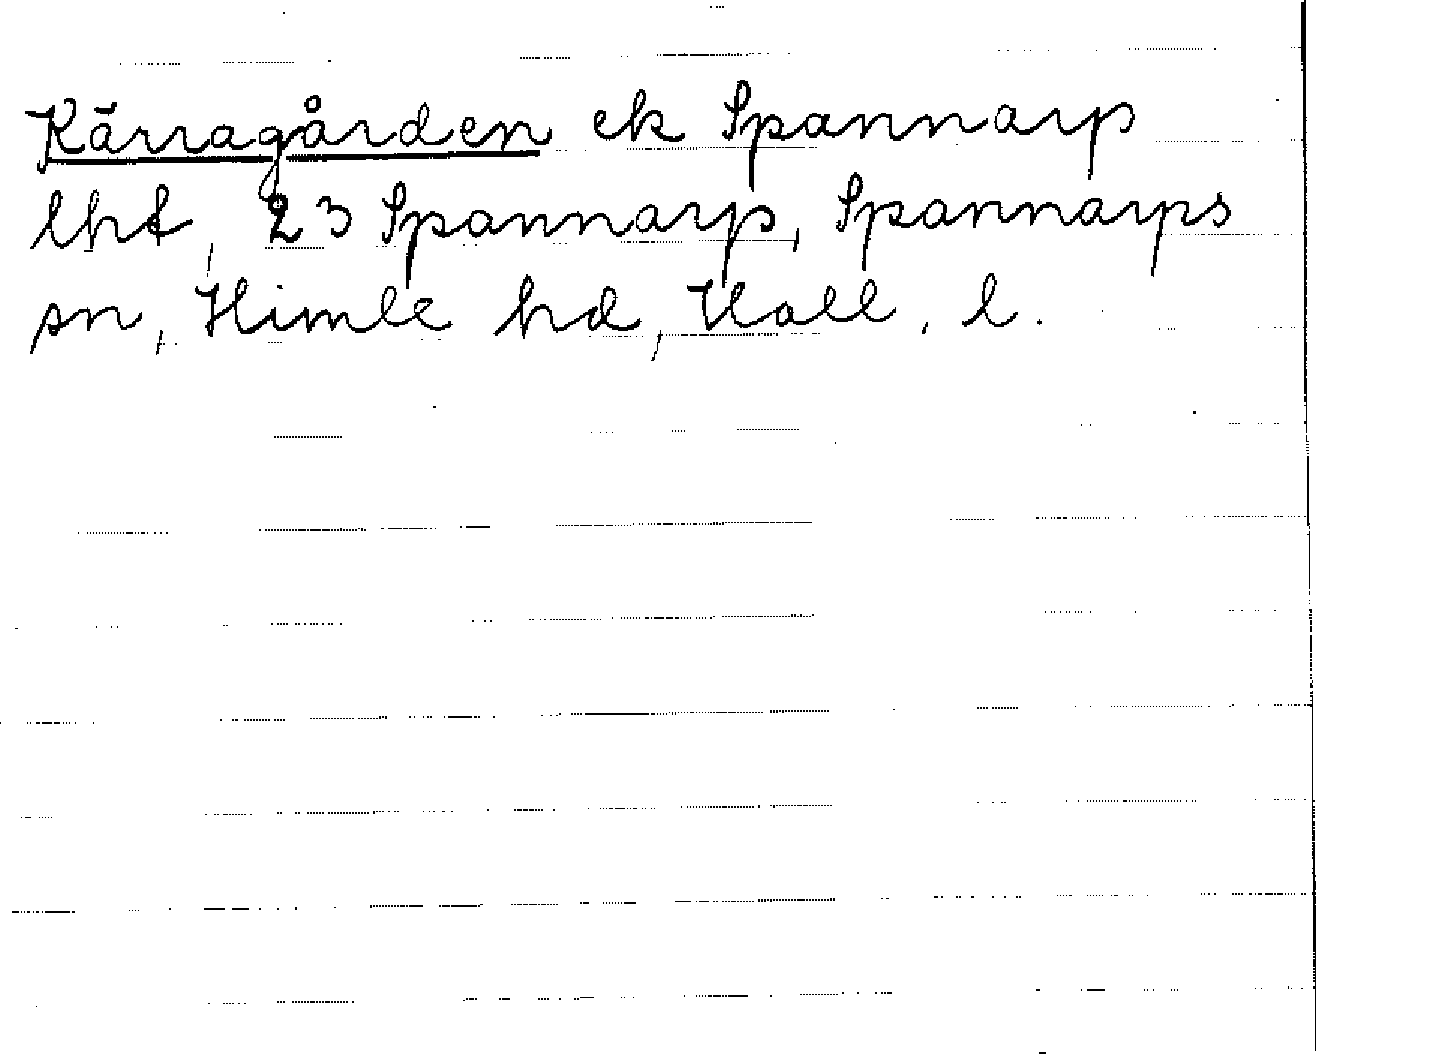 Kärragården ek Spannarp
lht, 23 Spannarp, Spannarps
sn, Himle hd, Hall. l.